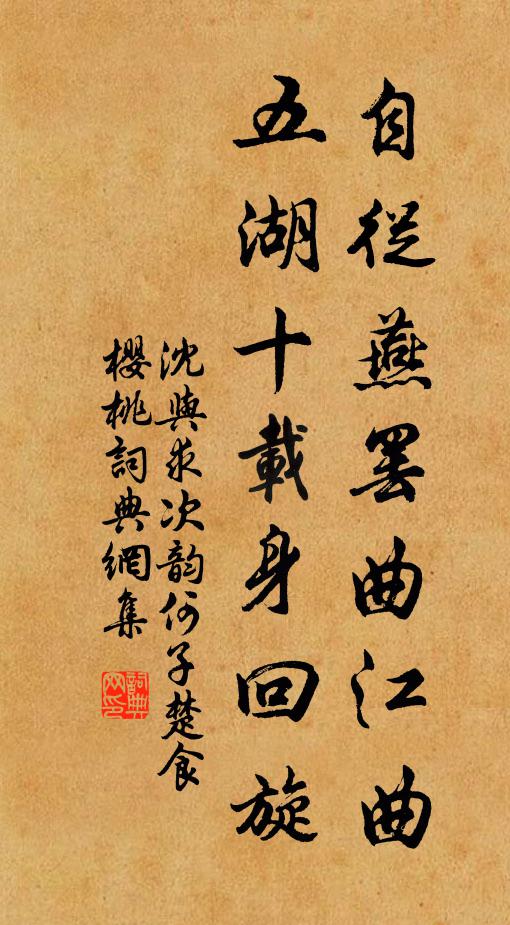 自從燕罷曲江曲
五湖十載身回旋
沈與求次韵何子楚食
櫻桃詞典網集
詞典网印